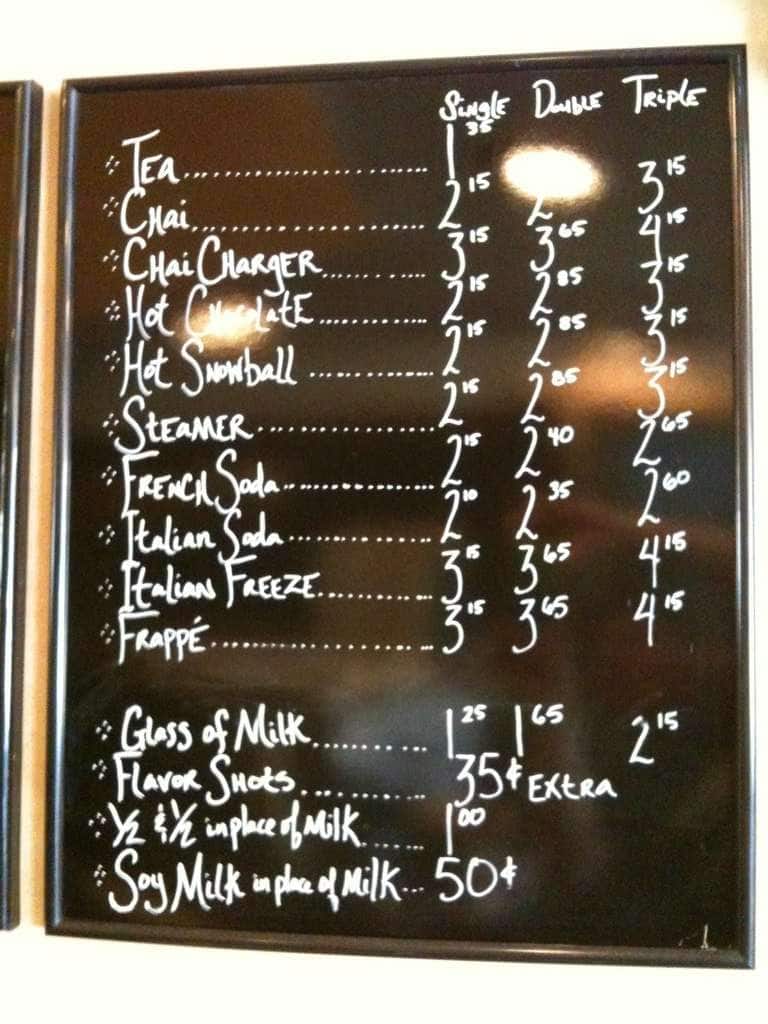 Single Double Triple
Tea 1 35
Chai 2 15 2 3 15
Chai Charger 3 15 3 65 4 15
Hot Chocolate 2 15 2 85 3 15
Hot Snowball 2 15 2 85 3 15
Steamer 2 15 2 85 3 15
French Soda 2 15 2 40 2 65
Italian Soda 2 10 2 35 2 60
Italian Freeze 3 15 3 65 4 15
Frappé 3 15 3 65 4 15
Glass of Milk 1 25 1 65 2 15
Flavor Shots 35¢ Extra
½ & ½ in place of Milk 1 00
Soy Milk in place of Milk 50¢